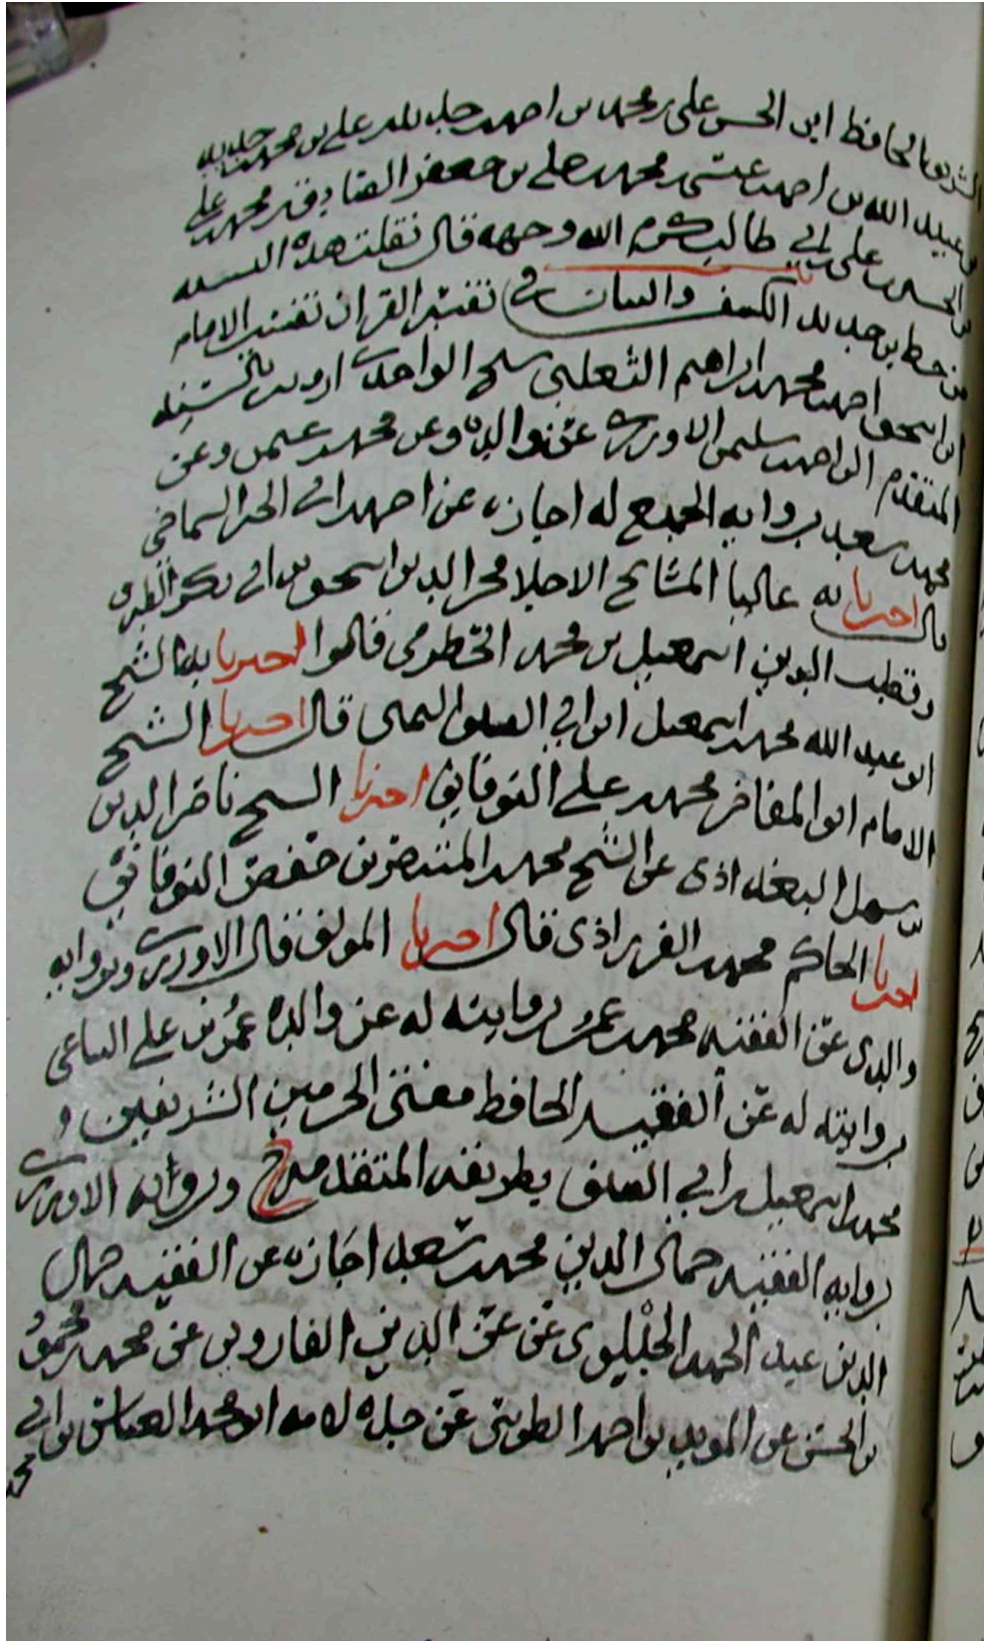 الشريف الحافظ ابى الحسن على بن محمد بن احمد جليد بن على بن محمد بن
بن عبيد الله بن احمد بن عيسى بن محمد بن على بن جعفر الصادق بن محمد بن على
بن الحسين بن على بن ابي طالب كرم الله وجهه قال نقلت هذه النسبه
من خط بن جديد الكشف والبيان في تفسير القران تفسير الامام
ابى اسحق احمد بن محمد بن ابراهيم الثعلبى شيخ الواحدى ارويه بالسند
المتقدم الى احمد بن سليمن الاوزرى عن والده وعن محمد بن عيسى وعن
محمد بن سعيد بروايه الجميع له اجازه عن احمد بن ابى الخير الشماخي
قال اخبرنا به عاليا المشائخ الاجلا فخر الدين اسحق بن ابى بكر الطبرى
وقطب الدين اسمعيل بن محمد الحضرمى قالوا اخبرنا به الشيخ
ابو عبد الله محمد بن اسمعيل بن ابى الصيف اليمنى قال اخبرنا الشيخ
الامام ابو المفاخر محمد بن على النوقانى اخبرنا الشيخ ناصر الدين
بن سهل البغدادى عن الشيخ محمد بن المنتصر بن حفص النوقانى
اخبرنا الحاكم محمد الفرزاذى قال اخبرنا المولف قال الاوزرى وبروايه
والدى عن الفقيه محمد بن عمر بروايته له عن والده عمر بن على التباعى
بروايته له عن الفقيه الحافظ مفتى الحرمين الشريفين
محمد بن اسمعيل بن ابي الصيف بطريقه المتقدمه ح وبروايه الاوزرى
بروايه الفقيه جمال الدين محمد بن سعيد اجازه عن الفقيه جمال
الدين عبد الحميد الجيلوى عن عز الدين الفاروثى عن محمد بن محمود
بن الحسن عن المويد بن احمد الطوسى عن جده لامه ابو محمد العباس بن ابى
محمد